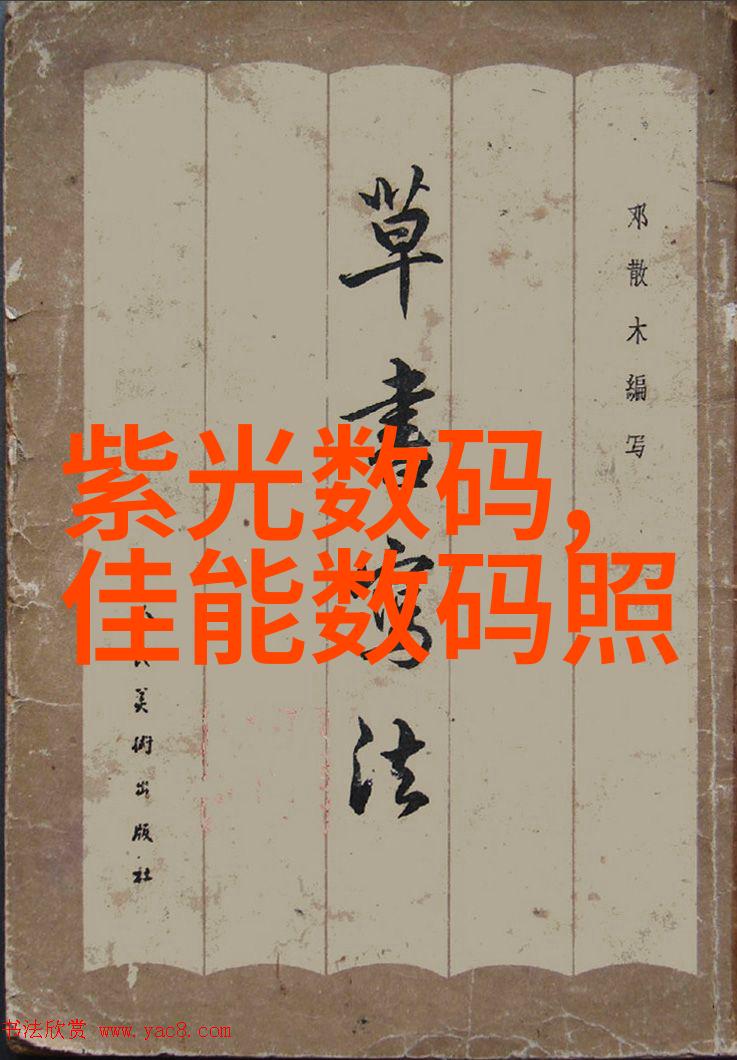 草書寫法
邓散木编写
民美術出版社
紫光数码,
佳能数码照
书法欣赏 www.yac8.com